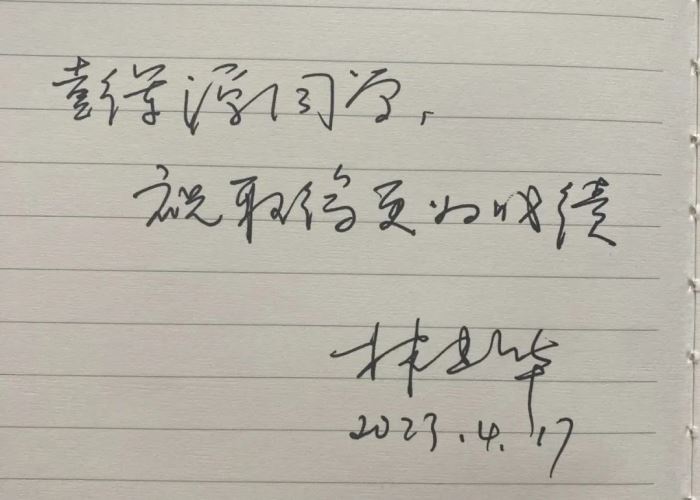 彭源同学,
祝取得更好成绩
林建华
2023.4.17